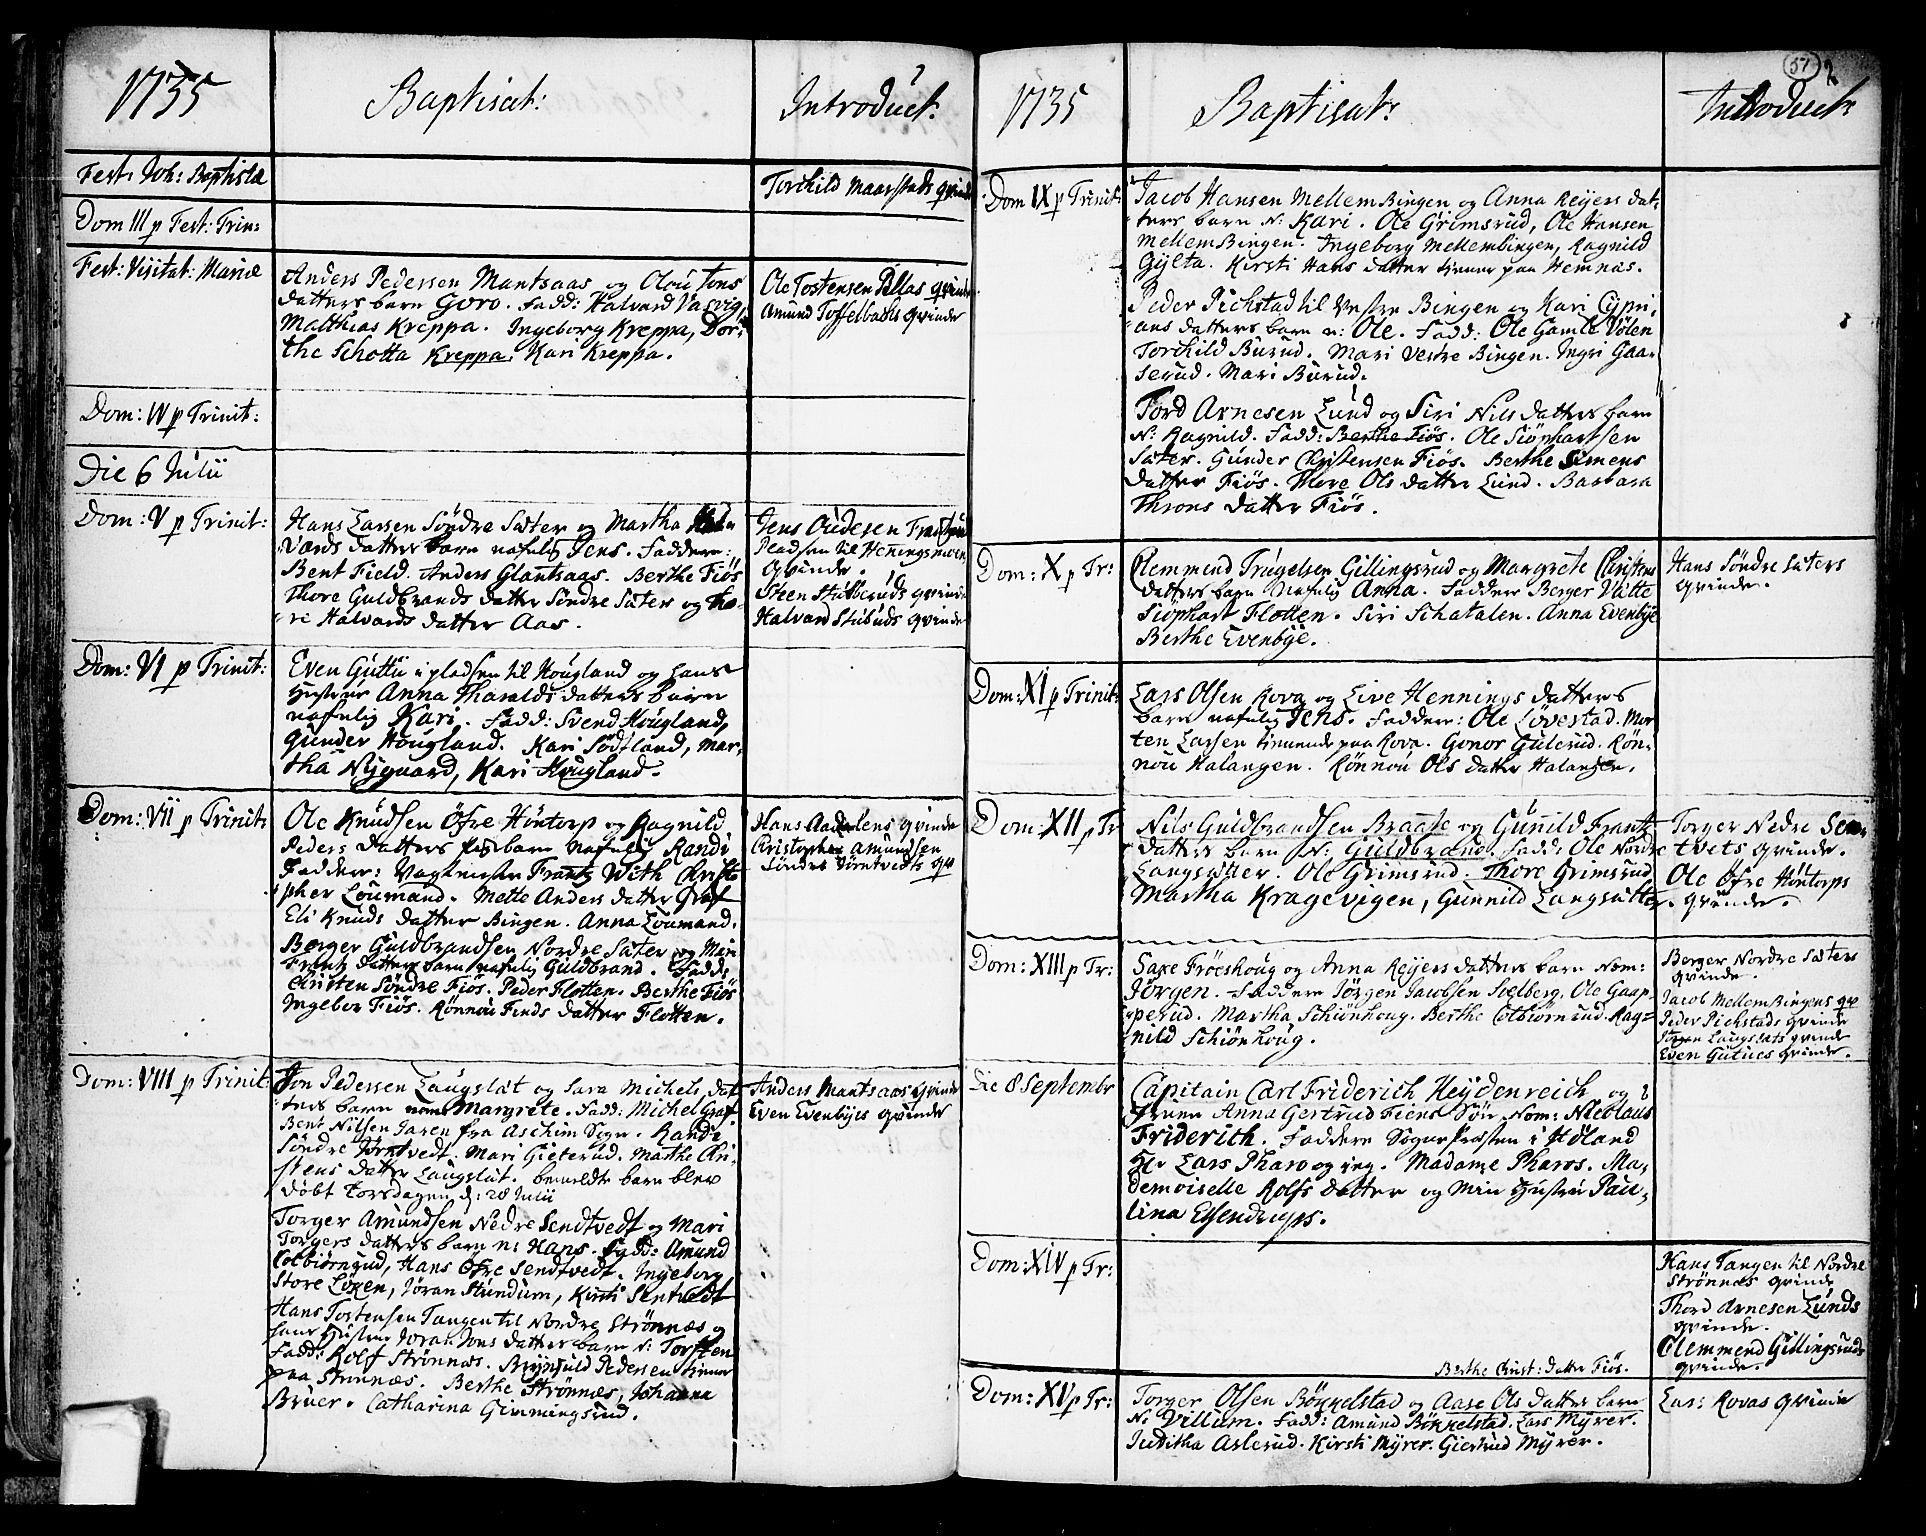 1735
Baptisat:
Introduct:
Fest: Joh: Baptistæ
Torchild Maarstads qvinde
Dom III p Fest: Trin:
Fest: Visitat: Mariæ
Anders Pedersen Mantsaas og Olou Jons
datters barn Goro. Fadd: Halvard Vasvig,
Matthias Kreppa. Ingeborg Kreppa, Dor-
the Schotta Kreppa, Kari Kreppa.
Ole Tostensen Pillas qvinde
Amund Toffelbachs qvinde
Dom: IV p Trinit:
Die 6 Julii
Dom: V p Trinit:
Hans Larsen Söndre Sæter og Martha Hal-
vards datters barn nafnlig Jens. Faddere:
Bent Field. Anders Glantsaas. Berthe Fiös
Thore Guldbrands datter Söndre Sæter og
Halvards datter Aas.
Jens Oudesen
Pladsen til Henningsmoen
qvinde.
Steen Stubberuds qvinde
Halvard Stubuds qvinde
Dom: VI p Trinit:
Even Guttu i pladsen til Hougland og hans
Hustrue Anna Tharalds datters barn
nafnlig Kari. Fadd: Svend Hougland,
Gunder Hougland. Kari Södtland, Mar-
tha Nygaard, Kari Hougland.
Dom: VII p Trinit:
Ole Knudsen Öfre Höntorp og Ragnild
Peders datters barn nafnlig Randi
Faddere: Vagtmester Frantz With Christo-
pher Loumand. Mette Anders datter Graf
Eli Knuds datter Bingen. Anna Loumand.
Berger Guldbrandsen Nordre Sæter og Mari
Frantz datters barn nafnlig Guldbrand. Fadd:
Christen Söndre Fiös. Peder Flotten. Berthe Fiös
Ingebor Fiös. Rönnou Finds datter Flotten.
Hans Aadalens qvinde
Christopher Amundsen
Söndre Törntvedts qv
Dom: VIII p Trinit:
Jon Pedersen Laugslat og Sara Michels dat-
ters barn nom: Margrete. Fadd: Michel Graf.
Bent Nilsen Jaren fra Aschim Sogn. Randi
Söndre Törntvedt. Mari Gieterud. Marthe Chri-
stens datter Laugslat. bemeldte barn blev
döbt Torsdagen d: 28 Julii
Torger Amundsen Nedre Sendtvedt og Mari
Torgers datters barn n: Hans. Fadd: Amund
Colbiörnrud, Hans Öfre Sendtvedt. Ingeborg
Store Löken, Jöran Stundum, Kirsti Sentvedt
Hans Tostensen Tangen til Nordre Strönnæs og
hans Hustru Joran Jons datters barn n: Torsten
Fadd: Rolf Strönnæs. Brynfuld Pedersen tiener
paa Strönnæs. Berthe Strönnæs, Johanna
Bruer. Catharina Gimmingsrud.
Anders Mantsaas qvinde
Even Evenbyes qvinde
57
2
1735
Baptisat:
Introduct:
Dom IX p Trinit:
Jacob Hansen Mellem Bingen og Anna Reyers dat-
ters barn N: Kari. Ole Grimsrud, Ole Hansen
Mellem Bingen. Ingeborg Mellembingen, Ragnild
Gylta. Kirsti Hans datter tiener paa Hemnæs.
Peder Pichstad til Vestre Bingen og Kari Cypri-
ans datters barn n: Ole. Fadd: Ole Gamle Völen
Torchild Burud. Mari Vestre Bingen. Ingri Gaa-
serud. Mari Burud.
Tord Arnesen Lund og Siri Nils datters barn
N: Ragnild. Fadd: Berthe Fiös. Ole Siöphartsen
Sæter. Gunder Christensen Fiös. Berthe Simens
datter Fiös. Thore Ols datter Lund. Barbara
Throns datter Fiös.
Dom: X p Tr:
Clemmend Trugelsen Gillingsrud og Margrete Christens
datters barn Nafnlig Anna. Faddere Berger Vatte
Siöphart Flotten. Siri Schatalen. Anna Evenbye
Berthe Evenbye.
Hans Söndre Sæters
qvinde.
Dom: XI p Trinit:
Lars Olsen Rova og Live Hennings datters
barn nafnlig Jens. Faddere: Ole Lövestad. Mor-
ten Larsen tienende paa Rova. Gonor Gulerud. Rön-
nou Halangen. Rönnou Ols datter Halangen.
Dom: XII p Tr
Nils Guldbrandsen Braase og Gunnild Frantz
datters barn N: Guldbrand. Fadd: Ole Nordre
Langsæter. Ole Grimsrud. Thore Grimsrud
Martha Kragevigen, Gunnild Langsætter.
Torger Nedre Sen-
tvets qvinde.
Ole Öfre Höntorps
qvinde.
Dom: XIII p Tr:
Saxe Fröeshoug og Anna Reyers datters barn Nom:
Jörgen. Faddere Jörgen Jacobsen Svelberg, Ole Gaap-
perud. Martha Schiönhoug. Berthe Colbiörnrud. Rag-
nild Schiönhoug.
Berger Nordre Sæters
qvinde.
Jacob Mellem Bingens qv
Peder Pichstads qvinde
Jörgen Laugslats qvinde
Even Gutues qvinde.
Die 8 Septembr
Capitain Carl Friderich Heydenreich og
Fruen Anna Gertrud Fiens Sön Nom: Nicolaus
Friderich. Faddere Sognepræsten i Höland
Hr Lars Pharo og jeg. Madame Pharos. Ma-
demoiselle Rolfs datter og min Hustru Pau-
lina Essendrups.
Dom: XIV p Tr:
Hans Tangen til Nordre
Strönnæs qvinde
Thord Arnesen Lunds
qvinde.
Clemmend Gillingsruds
qvinde.
Berthe Christ: datter Fiös.
Dom: XV p Tr:
Torger Olsen Bökkelstad og Aase Ols datters barn
N: Villum. Fadd: Amund Bökkelstad. Lars Myrer.
Juditha Aslerud. Kirsti Myrer. Giertrud Myrer.
Lars Rovas qvinde